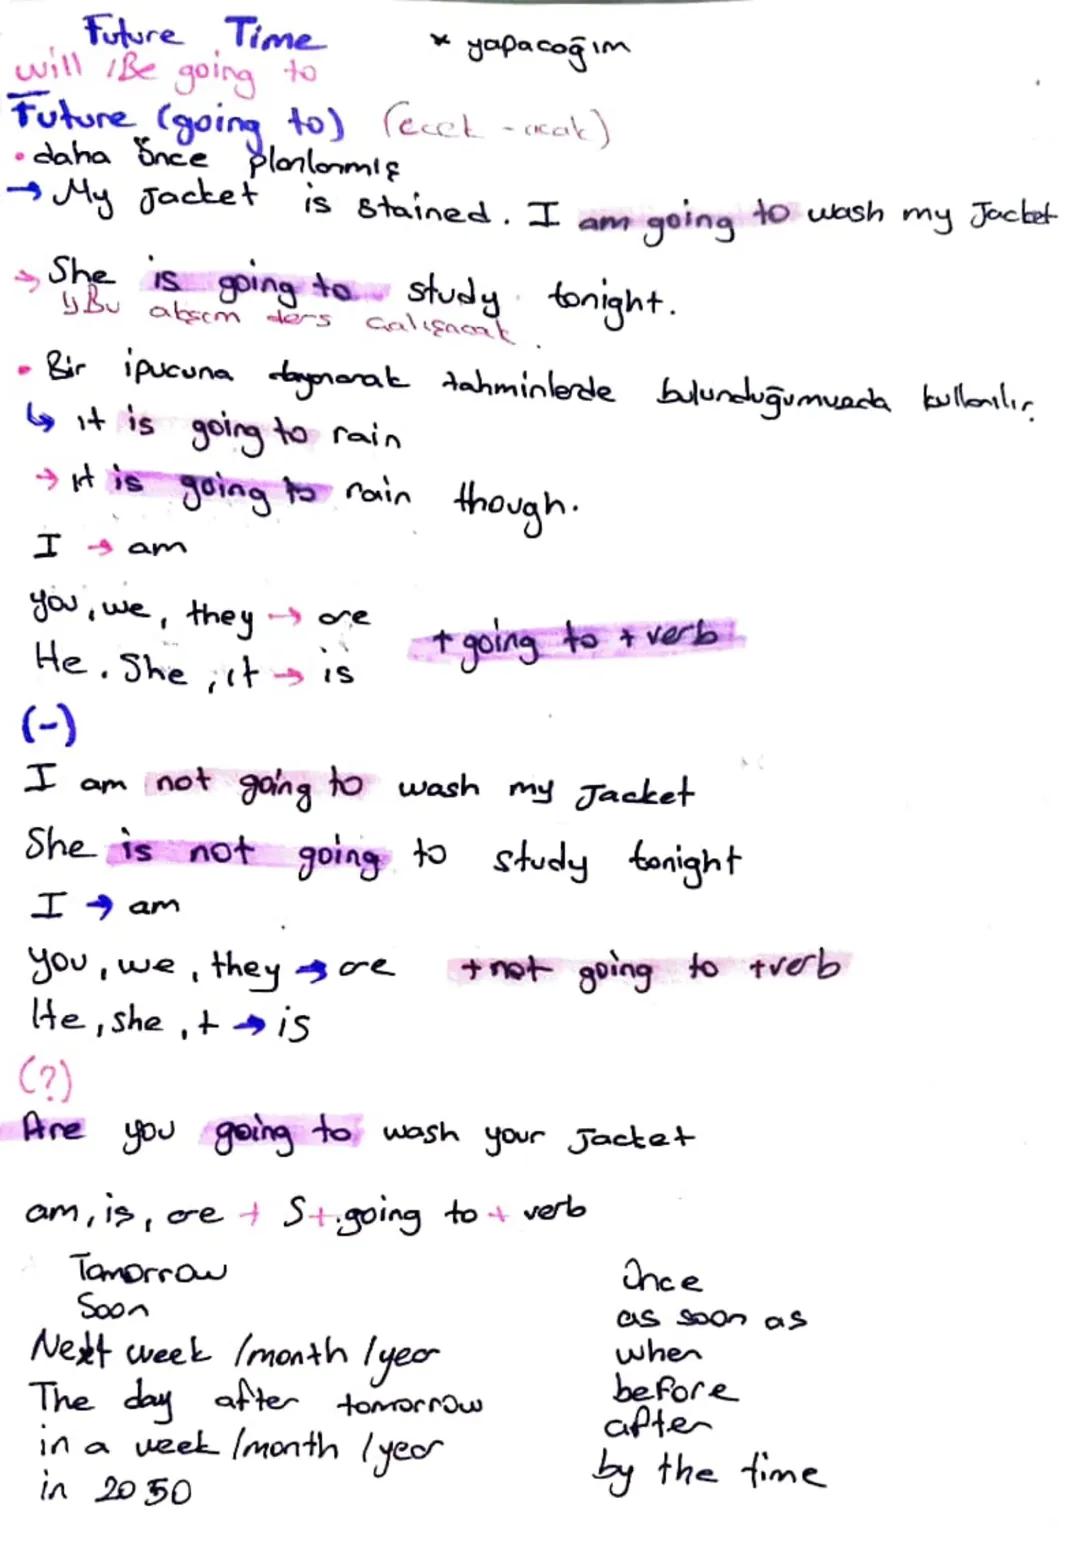 Future Time * yapacağım
will / Be going to
Future (going to) (ecek - acak)
• daha önce planlanmış
→ My Jacket is stained. I am going to wash my Jacket
→ She is going to study tonight.
↳ Bu akşam ders çalışacak.
• Bir ipucuna dayanarak tahminlerde bulunduğumuzda kullanılır.
↳ it is going to rain
→ it is going to rain though.
I → am
you, we, they → are
+ going to + verb
He. She, it → is
(-)
I am not going to wash my Jacket
She is not going to study tonight
I → am
you, we, they → are + not going to +verb
He, she, t → is
(?)
Are you going to wash your Jacket
am, is, are + S+.going to + verb
Tomorrow
Soon
Next week /month /year
The day after tomorrow
in a week /month /year
in 2050
Once
as soon as
when
before
after
by the time